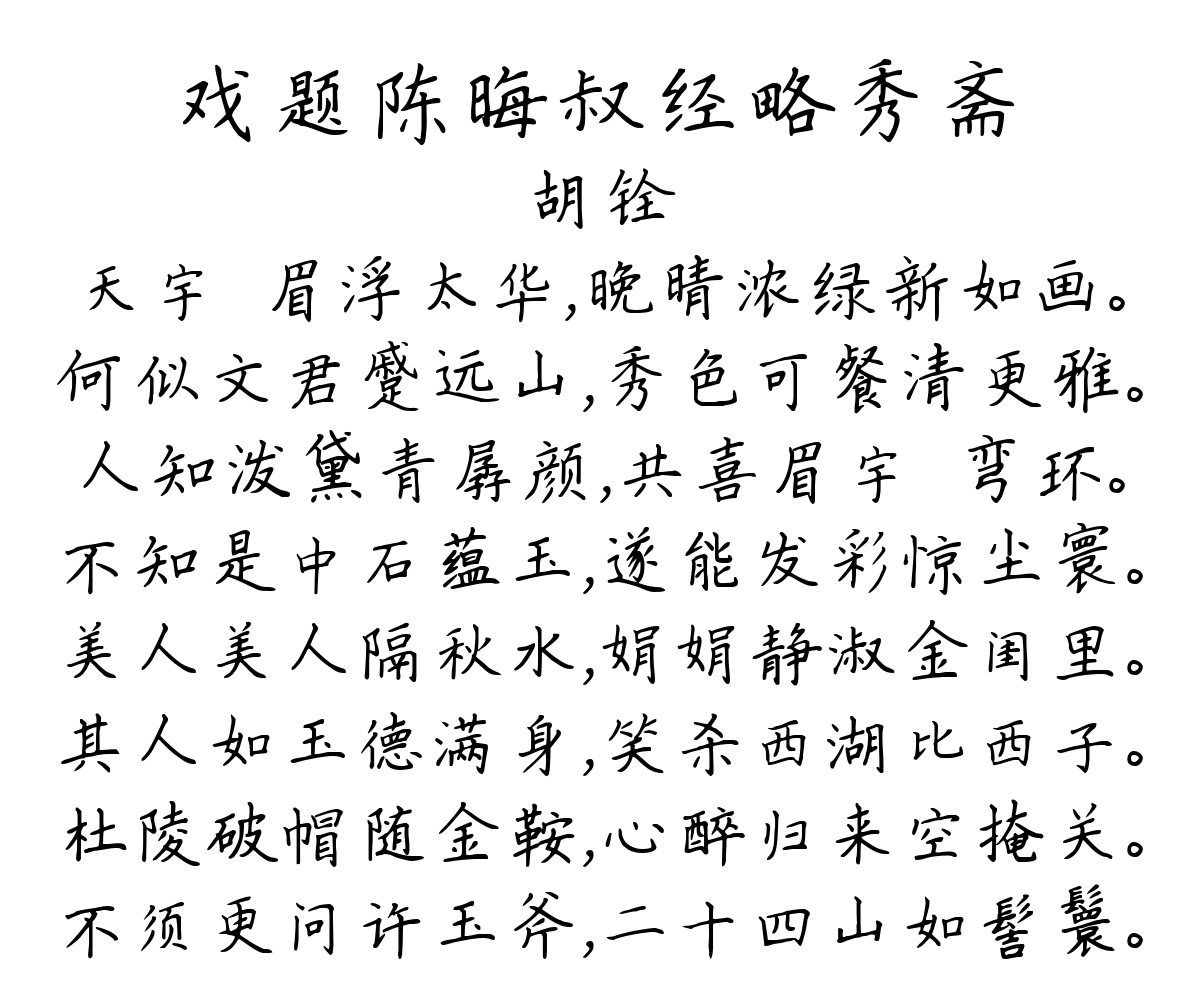 戏题陈晦叔经略秀斋
胡铨
天宇 眉浮太华,晚晴浓绿新如画。
何似文君蹙远山,秀色可餐清更雅。
人知泼黛青孱颜,共喜眉宇 弯环。
不知是中石蕴玉,遂能发彩惊尘寰。
美人美人隔秋水,娟娟静淑金闺里。
其人如玉德满身,笑杀西湖比西子。
杜陵破帽随金鞍,心醉归来空掩关。
不须更问许玉斧,二十四山如髻鬟。